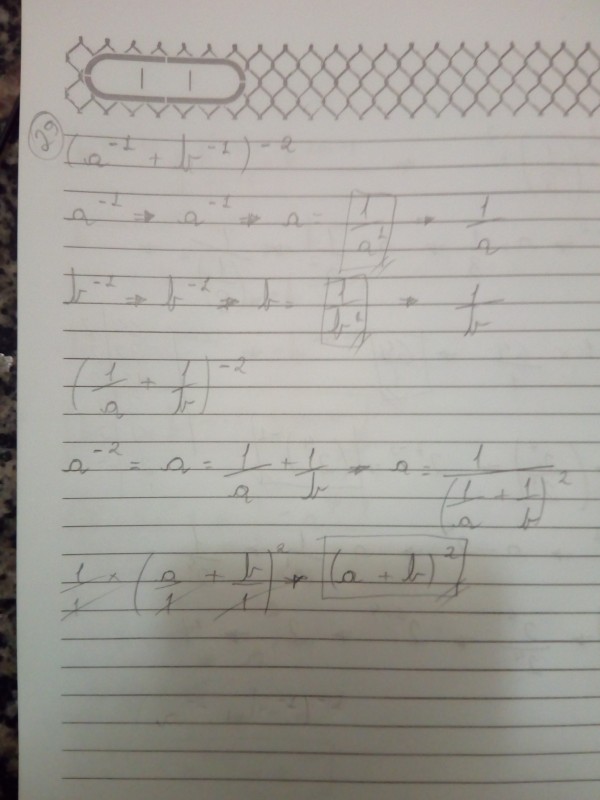 29
(a⁻¹ + b⁻¹)⁻²
a⁻¹ → a⁻¹ → a = 1/a¹ → 1/a
b⁻¹ → b⁻¹ → b = 1/b¹ → 1/b
(1/a + 1/b)⁻²
a⁻² = a = 1/a + 1/b → a = 1/(1/a + 1/b)²
1/1 × (a/1 + b/1)² → (a + b)²